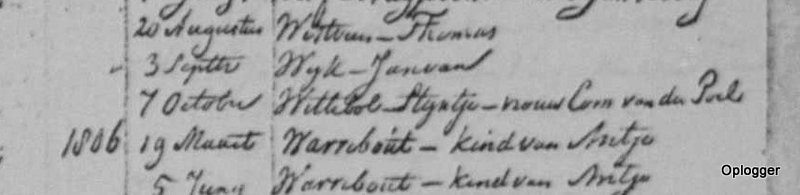 20 Augustus Westveen - Thomas
3 Septbr Wyk - Jan van
7 October Wittebol - Styntje - vrouw Corn van der Poel
1806 19 Maart Warrebout - kind van Antje
5 Juny Warrebout - kind van Antje
Oplogger